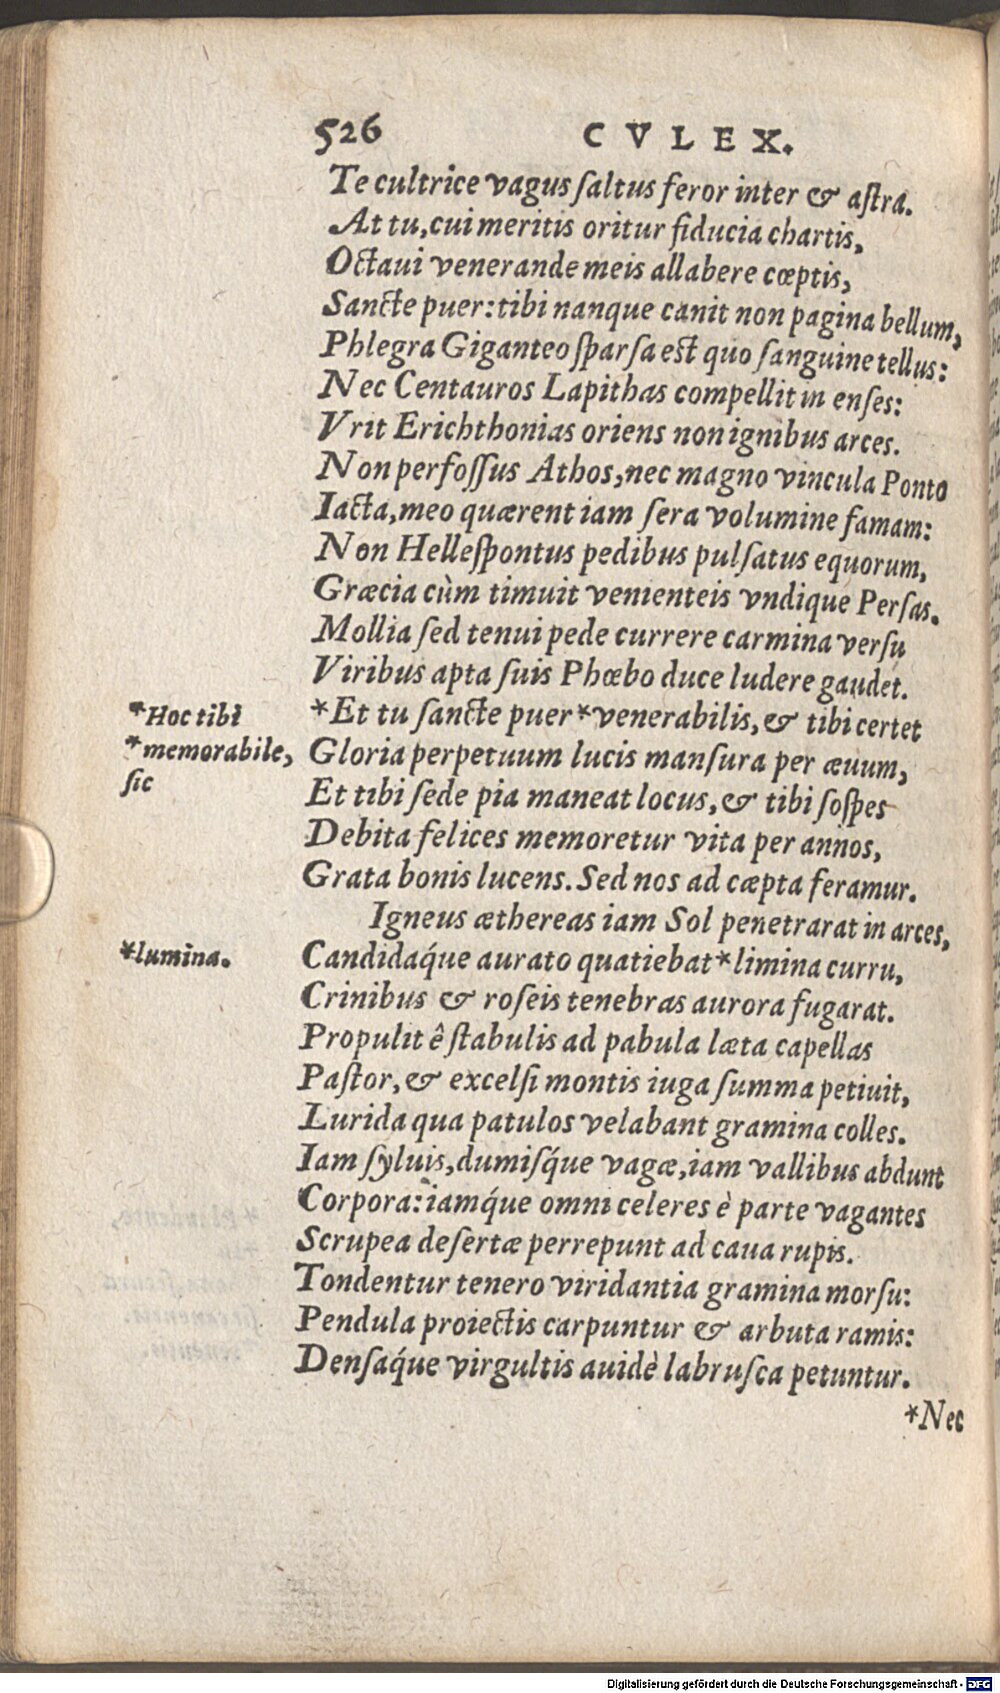 526 CVLEX.
Te cultrice vagus ſaltus feror inter & aſtra.
At tu, cui meritis oritur fiducia chartis,
Octaui venerande meis allabere cœptis,
Sancte puer: tibi nanque canit non pagina bellum,
Phlegra Giganteo ſparſa est quo ſanguine tellus:
Nec Centauros Lapithas compellit in enſes:
Vrit Erichthonias oriens non ignibus arces.
Non perfoſſus Athos, nec magno vincula Ponto
Iacta, meo quærent iam ſera volumine famam:
Non Helleſpontus pedibus pulſatus equorum,
Græcia cùm timuit venienteis vndique Perſas.
Mollia ſed tenui pede currere carmina verſu
Viribus apta ſuis Phœbo duce ludere gaudet.
*Hoc tibi
*Et tu ſancte puer *venerabilis, & tibi certet
*memorabile,
Gloria perpetuum lucis manſura per æuum,
ſic
Et tibi ſede pia maneat locus, & tibi ſoſpes
Debita felices memoretur vita per annos,
Grata bonis lucens. Sed nos ad cæpta feramur.
Igneus æthereas iam Sol penetrarat in arces,
*lumina.
Candidaq́ue aurato quatiebat *limina curru,
Crinibus & roſeis tenebras aurora fugarat.
Propulit ê ſtabulis ad pabula læta capellas
Paſtor, & excelſi montis iuga ſumma petiuit,
Lurida qua patulos velabant gramina colles.
Iam ſyluis, dumiſq́ue vagæ, iam vallibus abdunt
Corpora: iamq́ue omni celeres è parte vagantes
Scrupea deſertæ perrepunt ad caua rupis.
Tondentur tenero viridantia gramina morſu:
Pendula proiectis carpuntur & arbuta ramis:
Denſaq́ue virgultis auidè labruſca petuntur.
*Nec
Digitalisierung gefördert durch die Deutsche Forschungsgemeinschaft - DFG